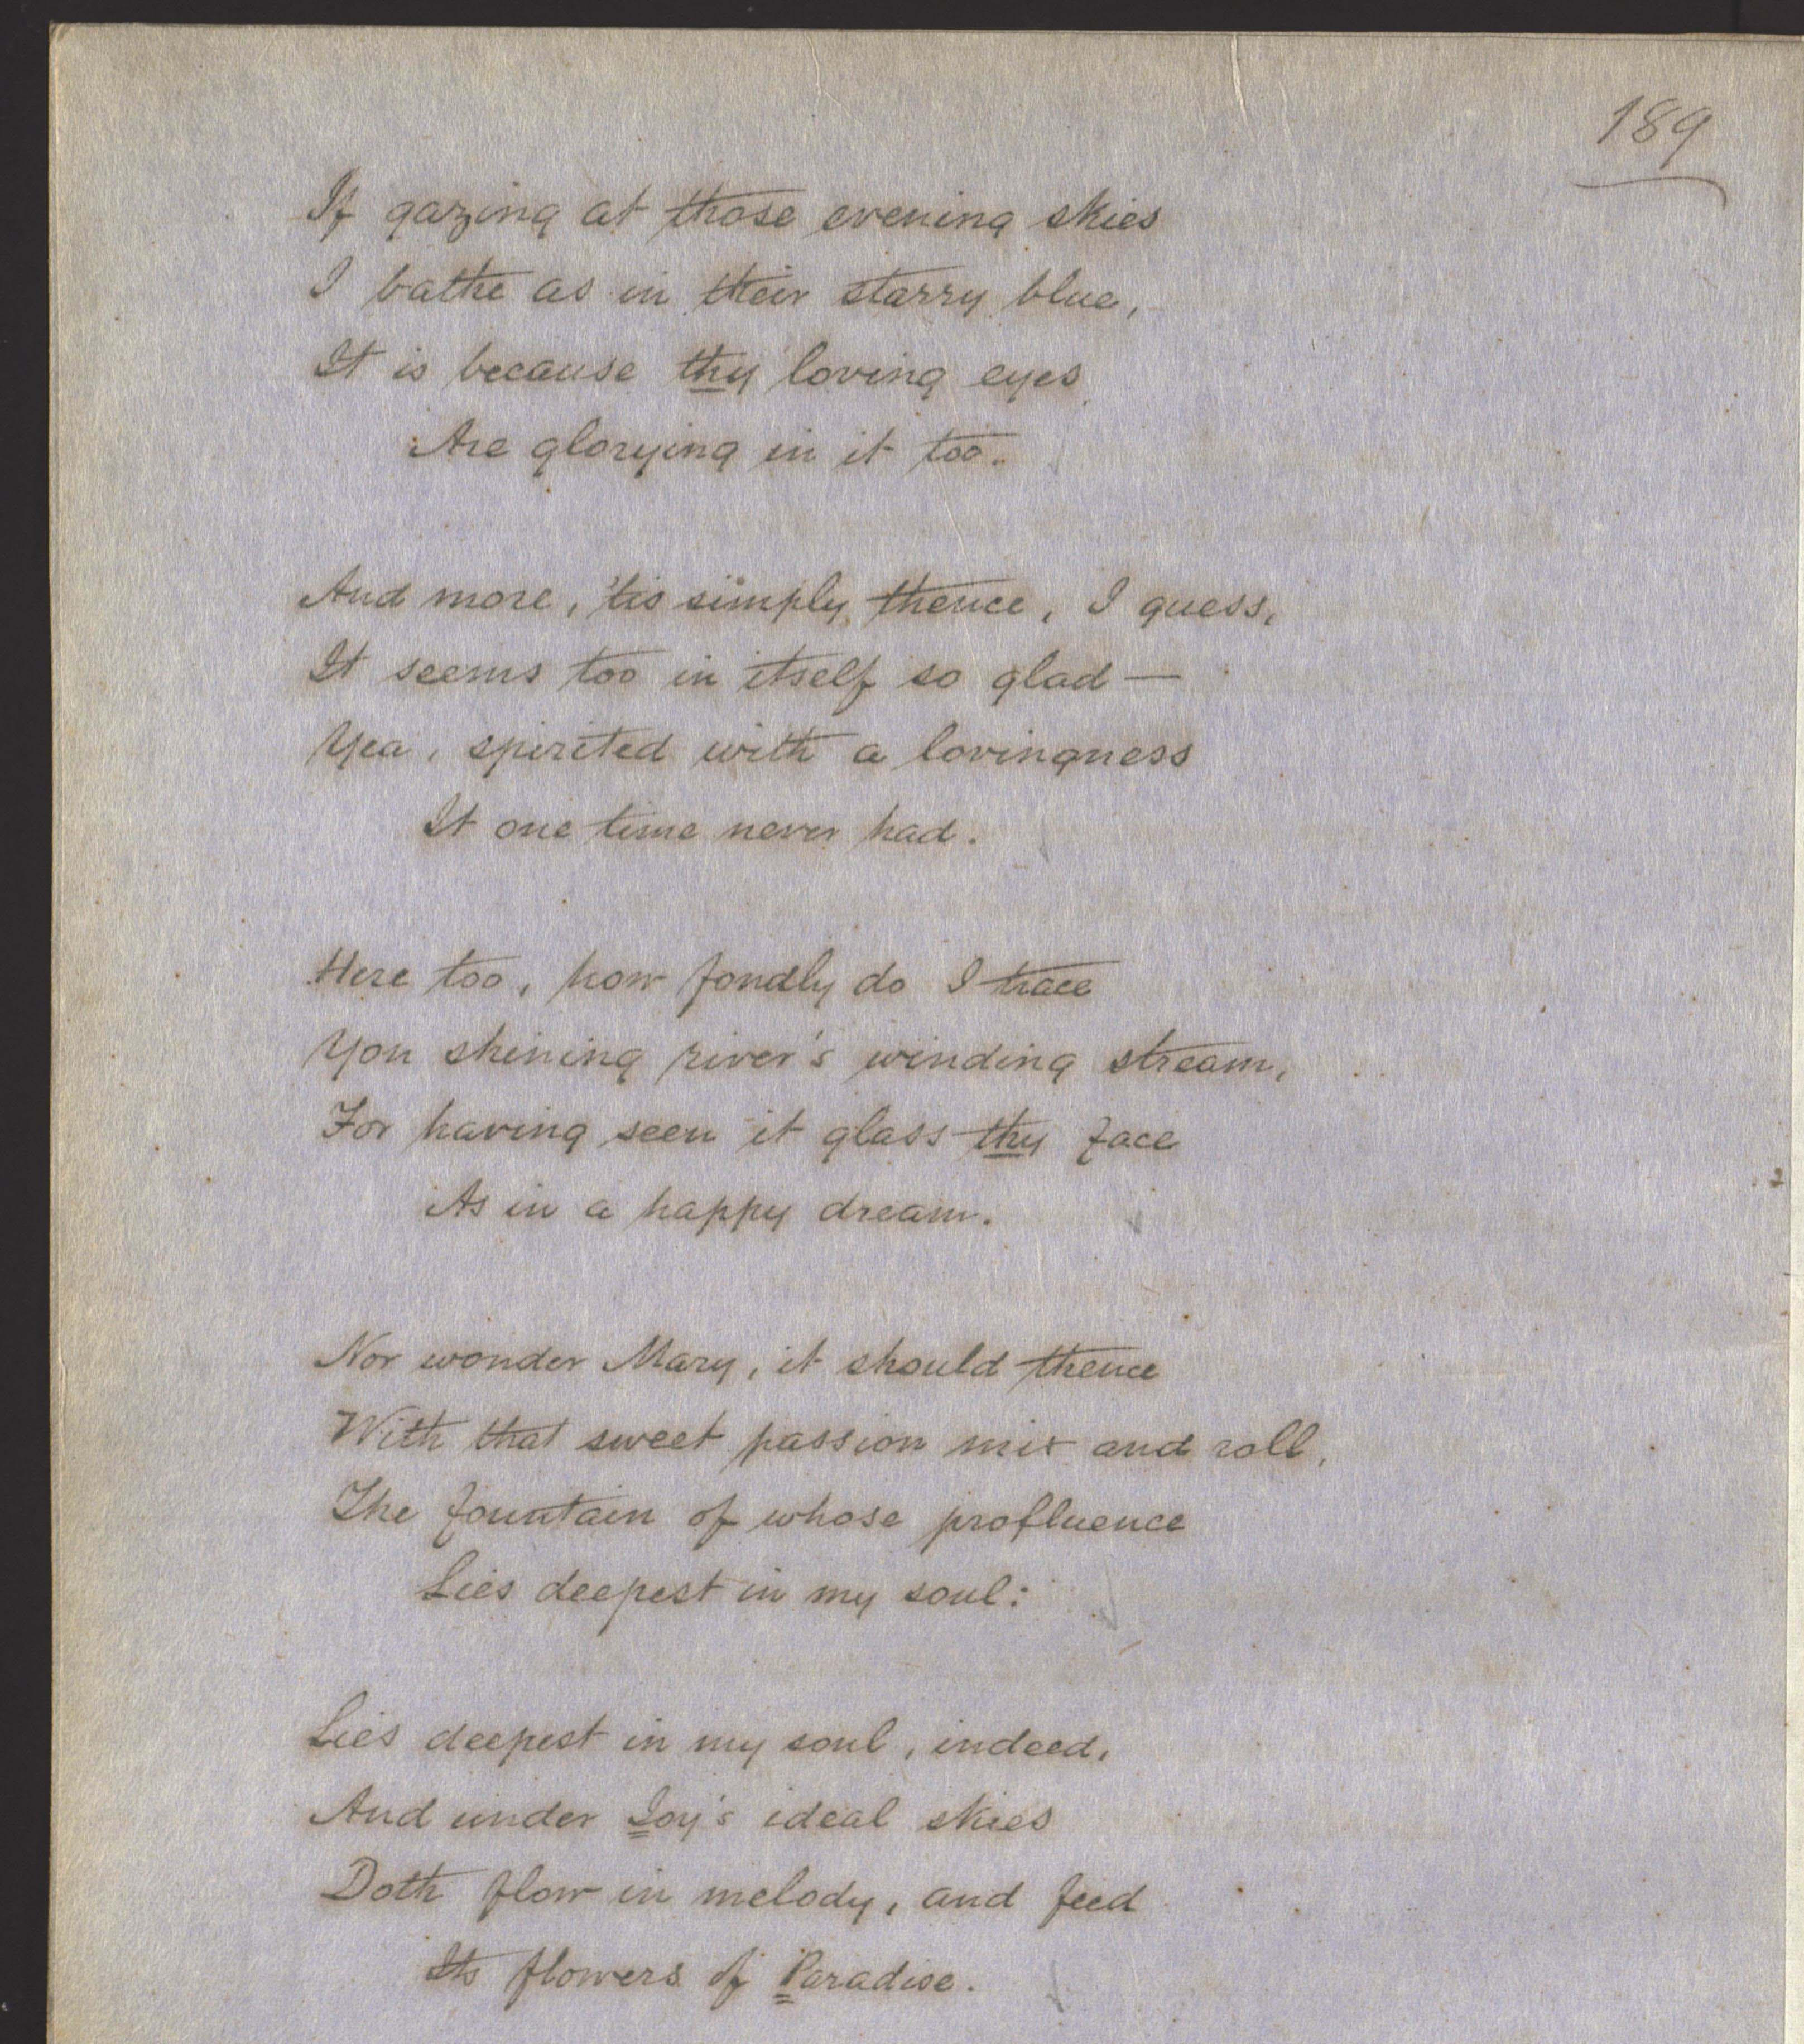 189
If gazing at those evening skies
I bathe as in their starry blue,
It is because thy loving eyes
Are glorying in it too.
And more, 'tis simply thence, I guess,
It seems too in itself so glad —
Yea, spirited with a lovingness
It one time never had.
Here too, how fondly do I trace
Yon shining river's winding stream,
For having seen it glass thy face
As in a happy dream.
Nor wonder Mary, it should thence
With that sweet passion mix and roll,
The fountain of whose profluence
Lies deepest in my soul:
Lies deepest in my soul, indeed,
And under Joy's ideal skies
Doth flow in melody, and feed
Its flowers of Paradise.